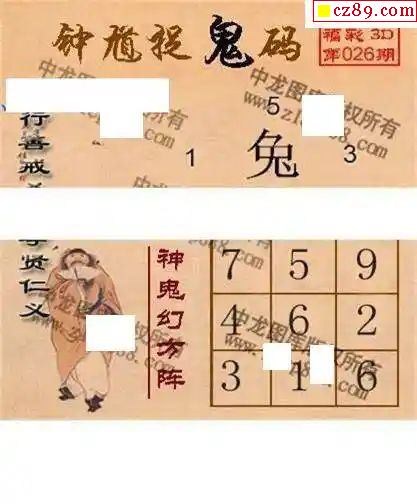 cz89.com
钟馗捉鬼码
福彩3D
第026期
中龙图库版权所有
行善戒
5
1
兔
3
贤仁义
神鬼幻方阵
7 5 9
4 6 2
3 1 6
中龙图库版权所有